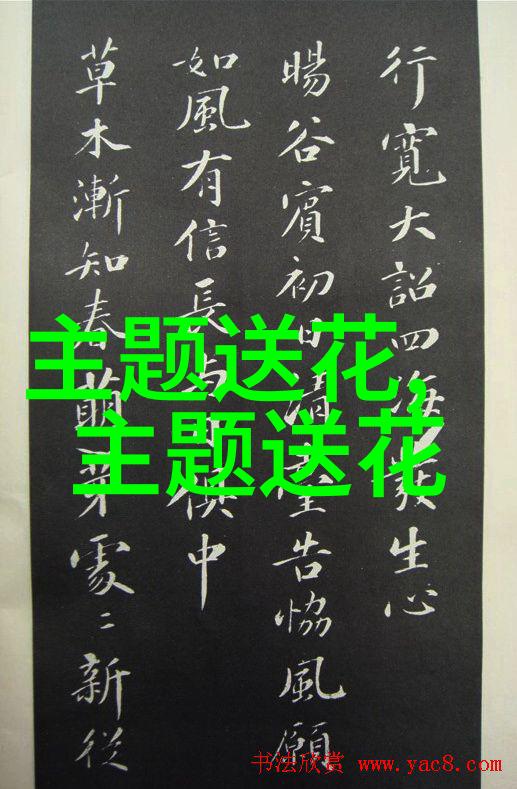 行寬大詔四海發生心
暘谷賓初日清臺告協風願
如風有信長與日俱中
草木漸知春萌芽處〻新從
主题送花,
主题送花
书法欣赏 www.yac8.com